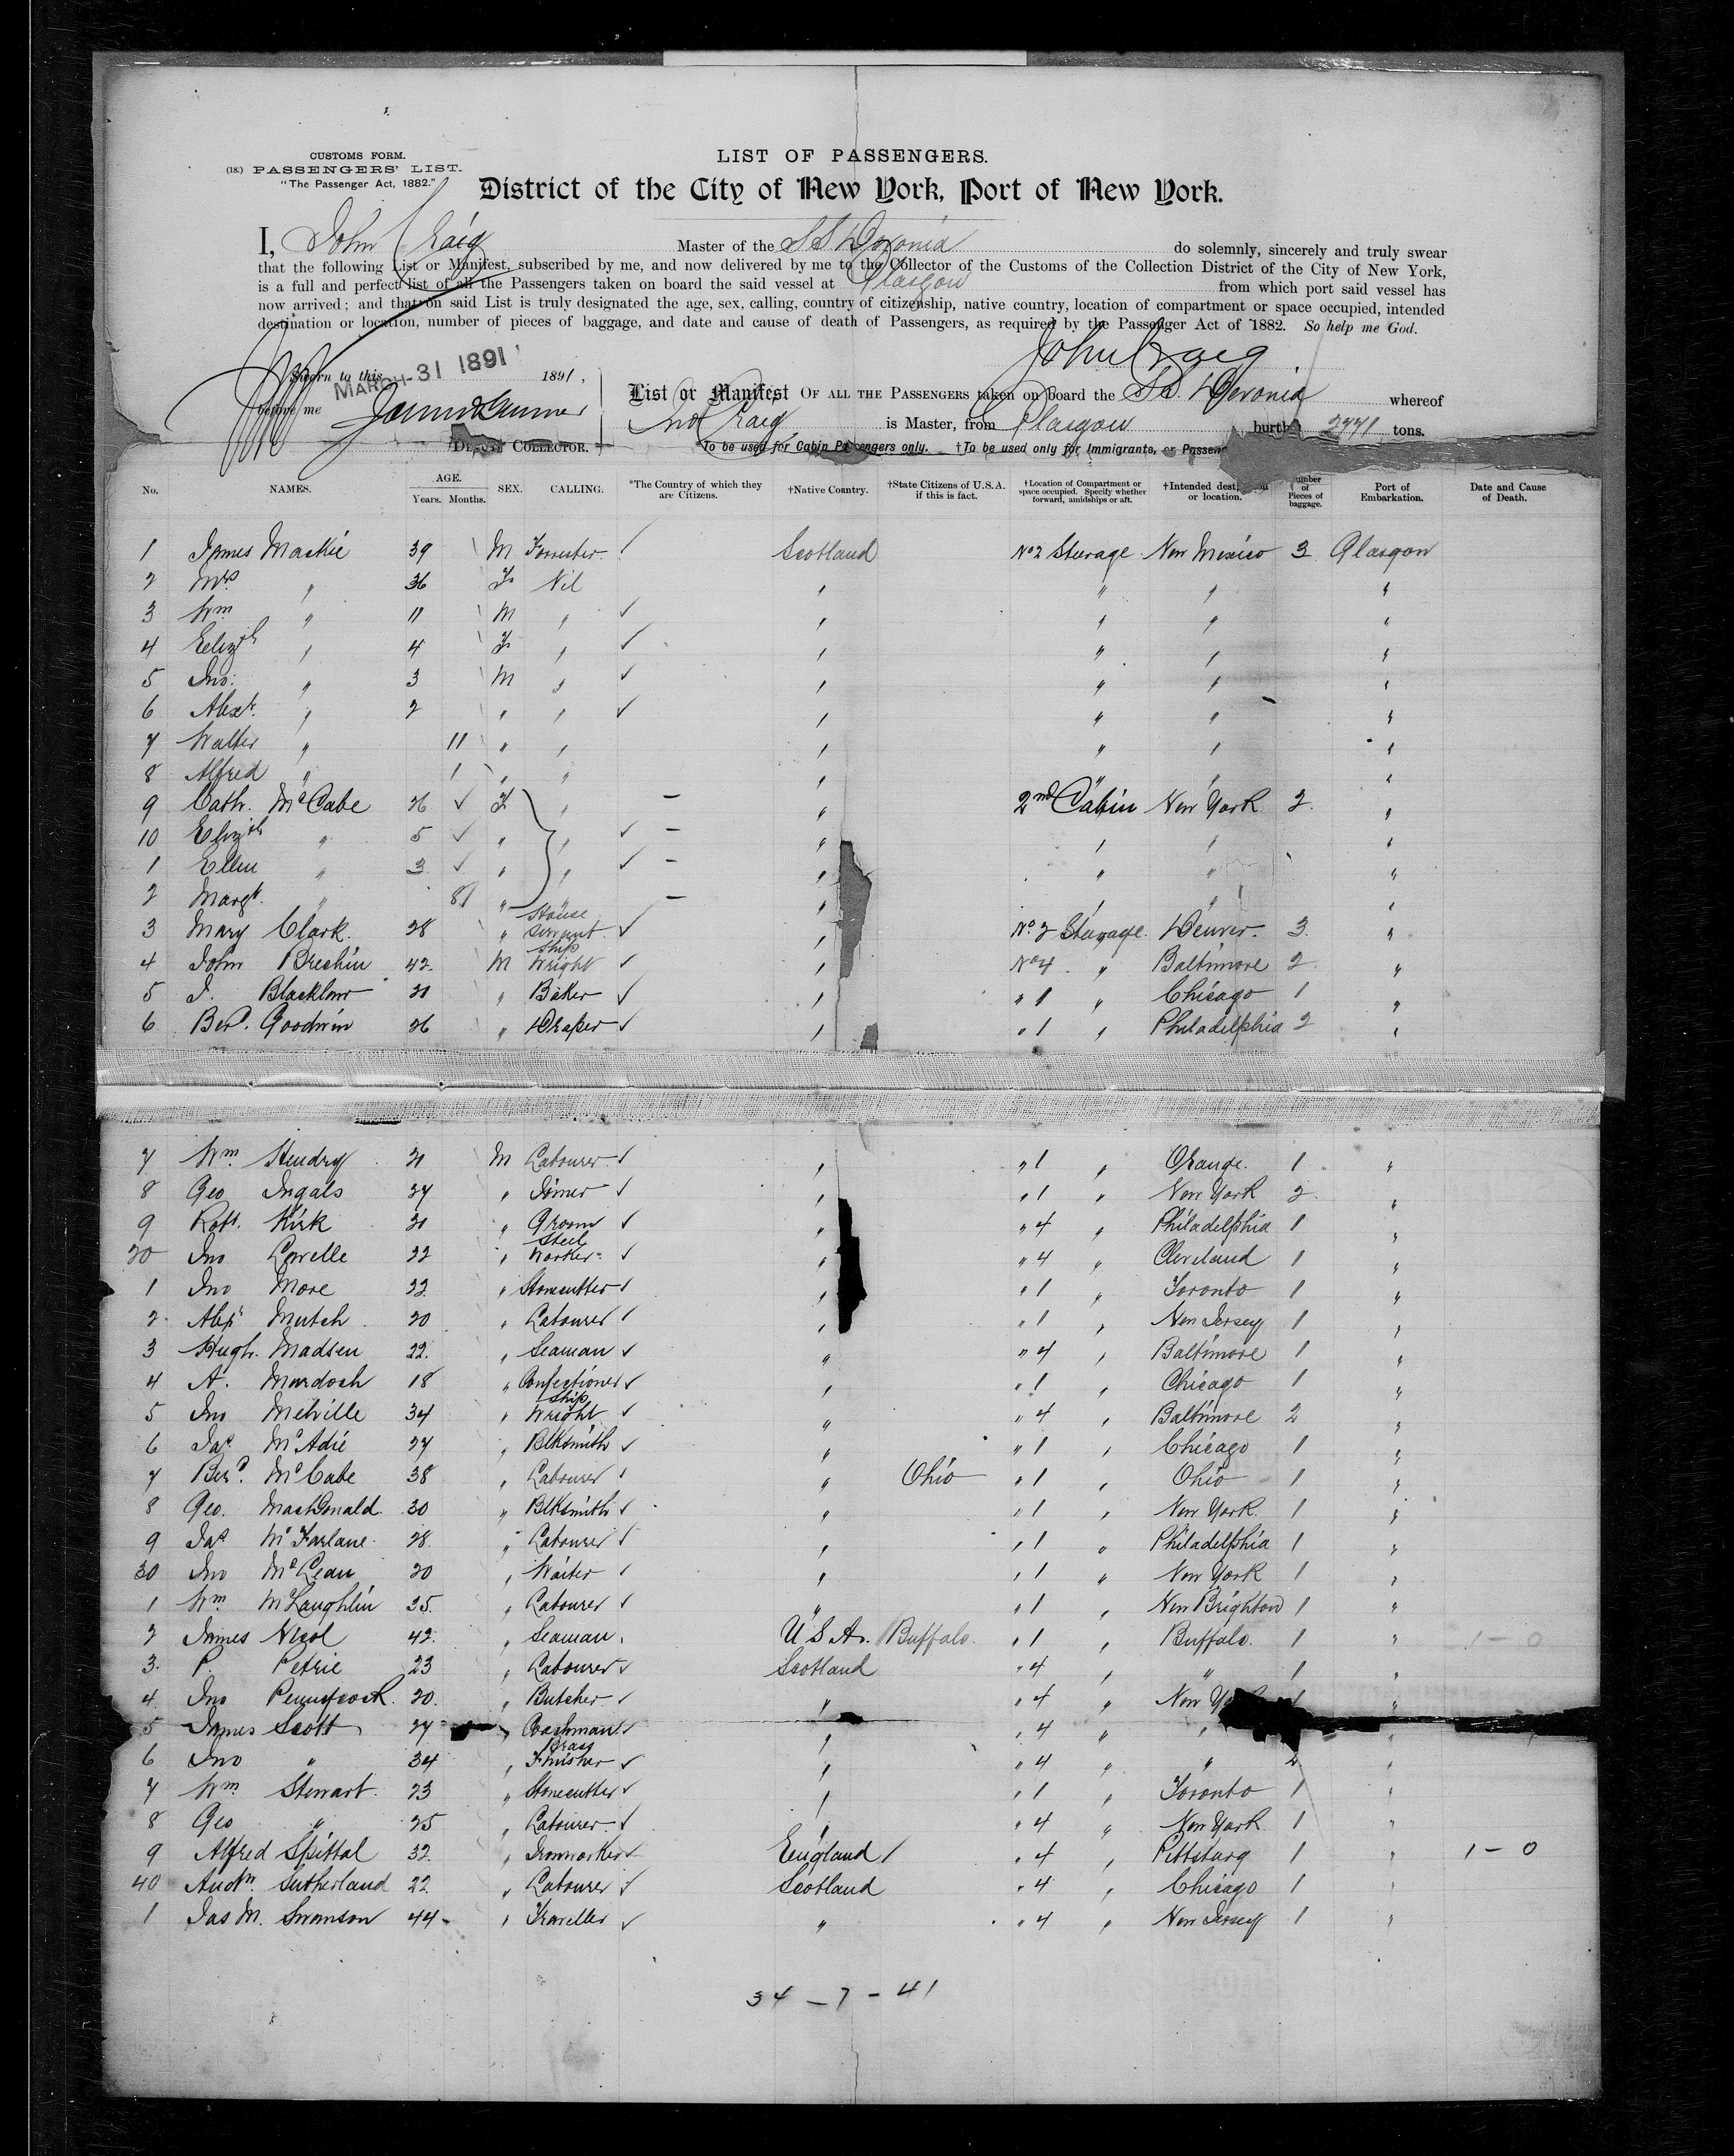 CUSTOMS FORM.
(18.) PASSENGERS' LIST.
"The Passenger Act, 1882."
LIST OF PASSENGERS.
District of the City of New York, Port of New York.
I, John Craig Master of the SS Devonia do solemnly, sincerely and truly swear
that the following List or Manifest, subscribed by me, and now delivered by me to the Collector of the Customs of the Collection District of the City of New York,
is a full and perfect list of all the Passengers taken on board the said vessel at Glasgow from which port said vessel has
now arrived; and that on said List is truly designated the age, sex, calling, country of citizenship, native country, location of compartment or space occupied, intended
destination or location, number of pieces of baggage, and date and cause of death of Passengers, as required by the Passenger Act of 1882. So help me God.
John Craig
Sworn to this MARCH 31 1891 1891,
before me
DEPUTY COLLECTOR.
List or Manifest OF ALL THE PASSENGERS taken on board the SS. Devonia whereof
Jno Craig is Master, from Glasgow burthen 2771 tons.
*To be used for Cabin Passengers only. †To be used only for Immigrants, or Passen
No. NAMES. AGE. Years. Months. SEX. CALLING. *The Country of which they are Citizens. †Native Country. †State Citizens of U.S.A. if this is fact. †Location of Compartment or space occupied. Specify whether forward, amidships or aft. †Intended destination or location. Number of Pieces of baggage. Port of Embarkation. Date and Cause of Death.
1 James Mackie 39 M Forrester / Scotland No 2 Steerage New Mexico 3 Glasgow
2 Mrs " 36 F Nil " " " "
3 Wm " 11 M " ✓ " " " "
4 Elizth " 4 F " ✓ " " " "
5 Jno: " 3 M " ✓ " " " "
6 Alexr. " 2 " " ✓ " " " "
7 Walter " 11 " " " " " "
8 Alfred " 1 " " " " " "
9 Cath. McCabe 26 ✓ F " – " 2nd Cabin New York 2 "
10 Elizth " 5 ✓ " " ✓ – " " " "
1 Ellen " 3 ✓ " " ✓ – " " " "
2 Margt. " 8 " " – " " " "
3 Mary Clark. 28 " House Servant ✓ " No. 2 Steerage Denver. 3 "
4 John Brechin 42 M Ship Wright ✓ " No 4 " Baltimore 2 "
5 J. Blacklow 21 " Baker ✓ " " 1 " Chicago 1 "
6 Berd. Goodwin 26 " Draper ✓ " " 1 " Philadelphia 2 "
7 Wm. Hendry 21 M Labourer ✓ " " 1 " Orange. 1 "
8 Geo Ingals 27 " Joiner ✓ " " 1 " New York 2 "
9 Robt. Kirk 21 " Groom ✓ " " 4 " Philadelphia 1 "
20 Jno Lavelle 22 " Steel Worker ✓ " " 4 " Cleveland 1 "
1 Jno More 22 " Stonecutter ✓ " " 1 " Toronto 1 "
2 Alexr Mutch 20 " Labourer ✓ " " 1 " New Jersey 1 "
3 Hugh. Madsen 22. " Seaman ✓ " " 4 " Baltimore 1 "
4 A. Murdoch 18 " Confectioner ✓ " " 1 " Chicago 1 "
5 Jno Melville 34 " Ship Wright ✓ " " 4 " Baltimore 2 "
6 Jas McAdie 27 " Blksmith ✓ " " 1 " Chicago 1 "
7 Berd. McCabe 38 " Labourer ✓ " Ohio " 1 " Ohio 1 "
8 Geo. MacDonald 30 " Blksmith ✓ " " 1 " New York 1 "
9 Jas McFarlane 28 " Labourer ✓ " " 1 " Philadelphia 1 "
30 Jno McLean 20 " Waiter ✓ " " 1 " New York 1 "
1 Wm. McLaughlin 35. " Labourer ✓ " " 1 " New Brighton 1 "
2 James Nicol 42 " Seaman U S A. Buffalo. " 1 " Buffalo. 1 " 1 – 0
3. P. Petrie 23 " Labourer ✓ Scotland " 4 " " 1 "
4 Jno Pennycook. 20. " Butcher ✓ " " 4 " New Yo 1 "
5 James Scott 27 " Coachman ✓ " " 4 " " "
6 Jno " 34 " Brass Finisher ✓ " " 4 " " 2 "
7 Wm. Stewart 23 " Stonecutter ✓ " " 1 " Toronto 1 "
8 Geo " 25 " Labourer ✓ " " 4 " New York 1 "
9 Alfred Spittal 32 " Ironworker ✓ England / " 4 " Pittsburg 1 " 1 – 0
40 Andw. Sutherland 22 " Labourer ✓ Scotland " 4 " Chicago 1 "
1 Jas M. Swanson 44 " Traveller ✓ " " 4 " New Jersey 1 "
34 – 7 – 41